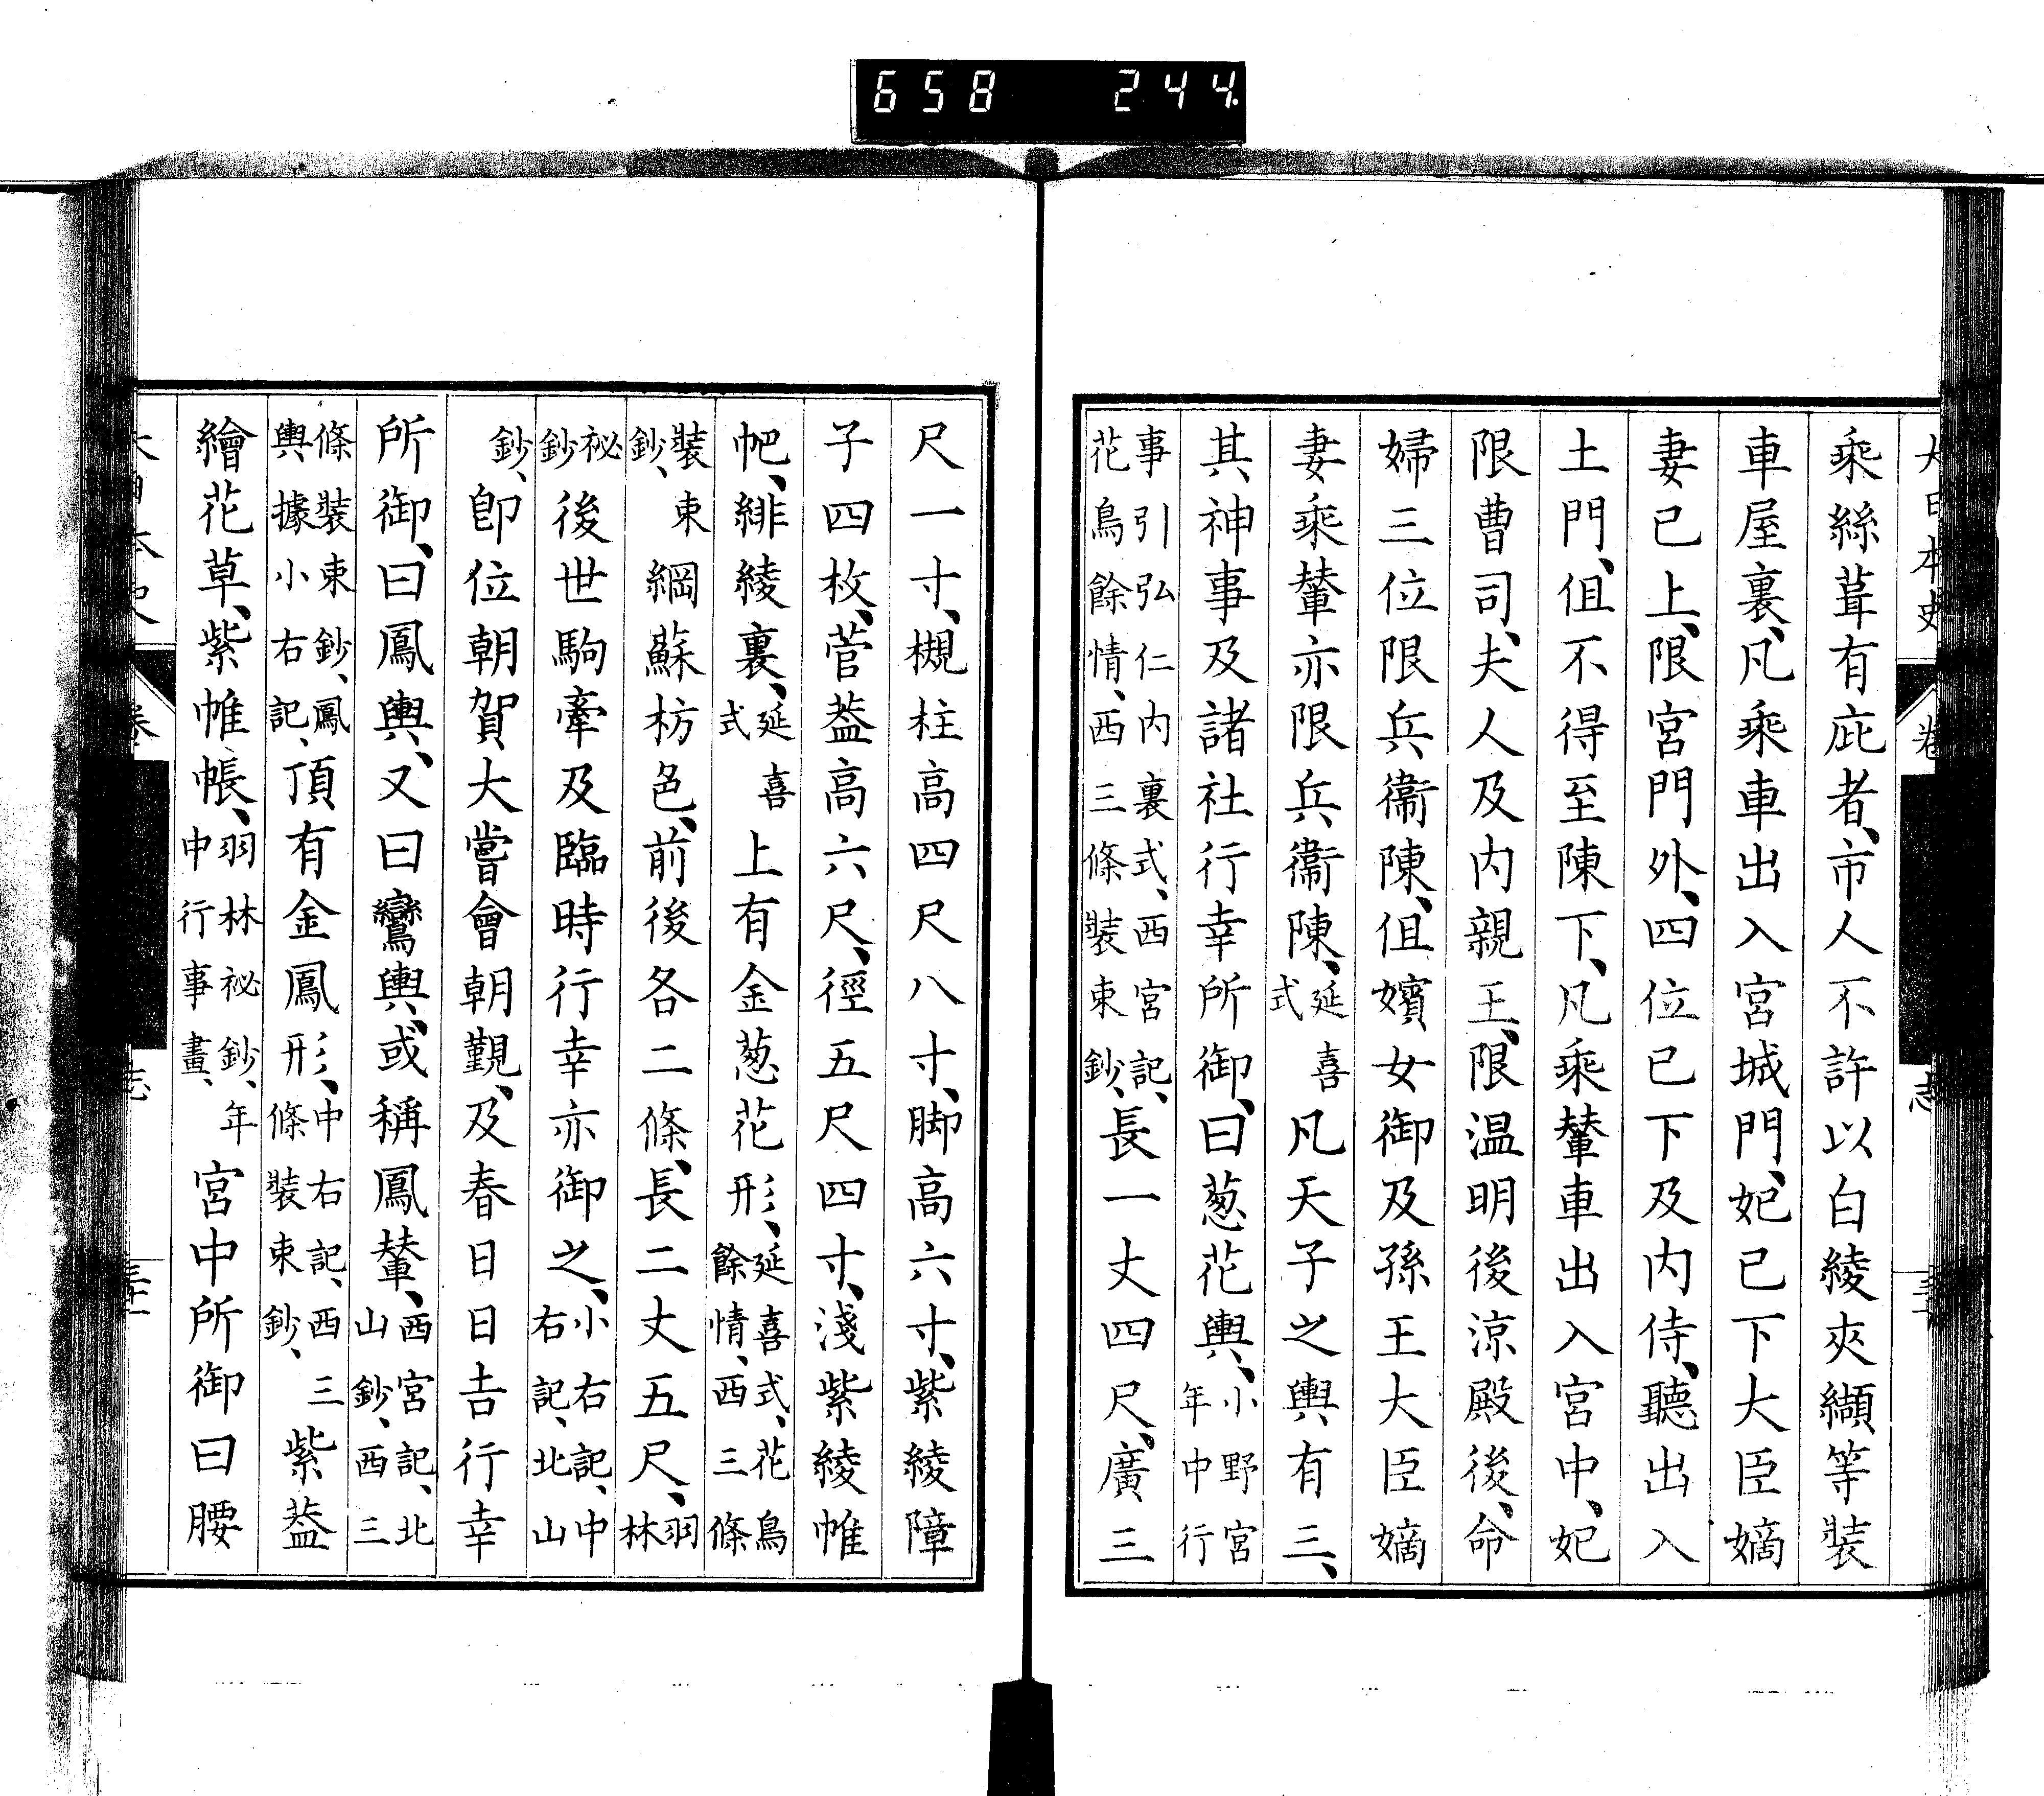 658 244
大日本史 卷 志
乘絲葺有庇者、市人不許以白綾夾纈等裝
車屋裏、凡乘車出入宮城門、妃已下大臣嫡
妻已上、限宮門外、四位已下及内侍、聽出入
土門、但不得至陳下、凡乘輦車出入宮中、妃
限曹司、夫人及内親王、限温明後涼殿後、命
婦三位限兵衞陳、但嬪女御及孫王大臣嫡
妻乘輦亦限兵衞陳、延喜式凡天子之輿有三、
其神事及諸社行幸所御、曰葱花輿、小野宮年中行
事引弘仁内裏式、西宮記、花鳥餘情、西三條裝束鈔、長一丈四尺、廣三
尺一寸、槻柱高四尺八寸、脚高六寸、紫綾障
子四枚、菅葢高六尺、徑五尺四寸、淺紫綾帷
帊、緋綾裏、延喜式上有金葱花形、延喜式、花鳥餘情、西三條
裝束鈔、綱蘇枋色、前後各二條、長二丈五尺、羽林
祕鈔後世駒牽及臨時行幸亦御之、小右記、中右記、北山
鈔、卽位朝賀大嘗會朝覲、及春日日吉行幸
所御、曰鳳輿、又曰鸞輿、或稱鳳輦、西宮記、北山鈔、西三
條裝束鈔、鳳輿、據小右記、頂有金鳳形、中右記、西三條裝束鈔、紫葢
繪花草、紫帷帳、羽林祕鈔、年中行事畫、宮中所御曰腰